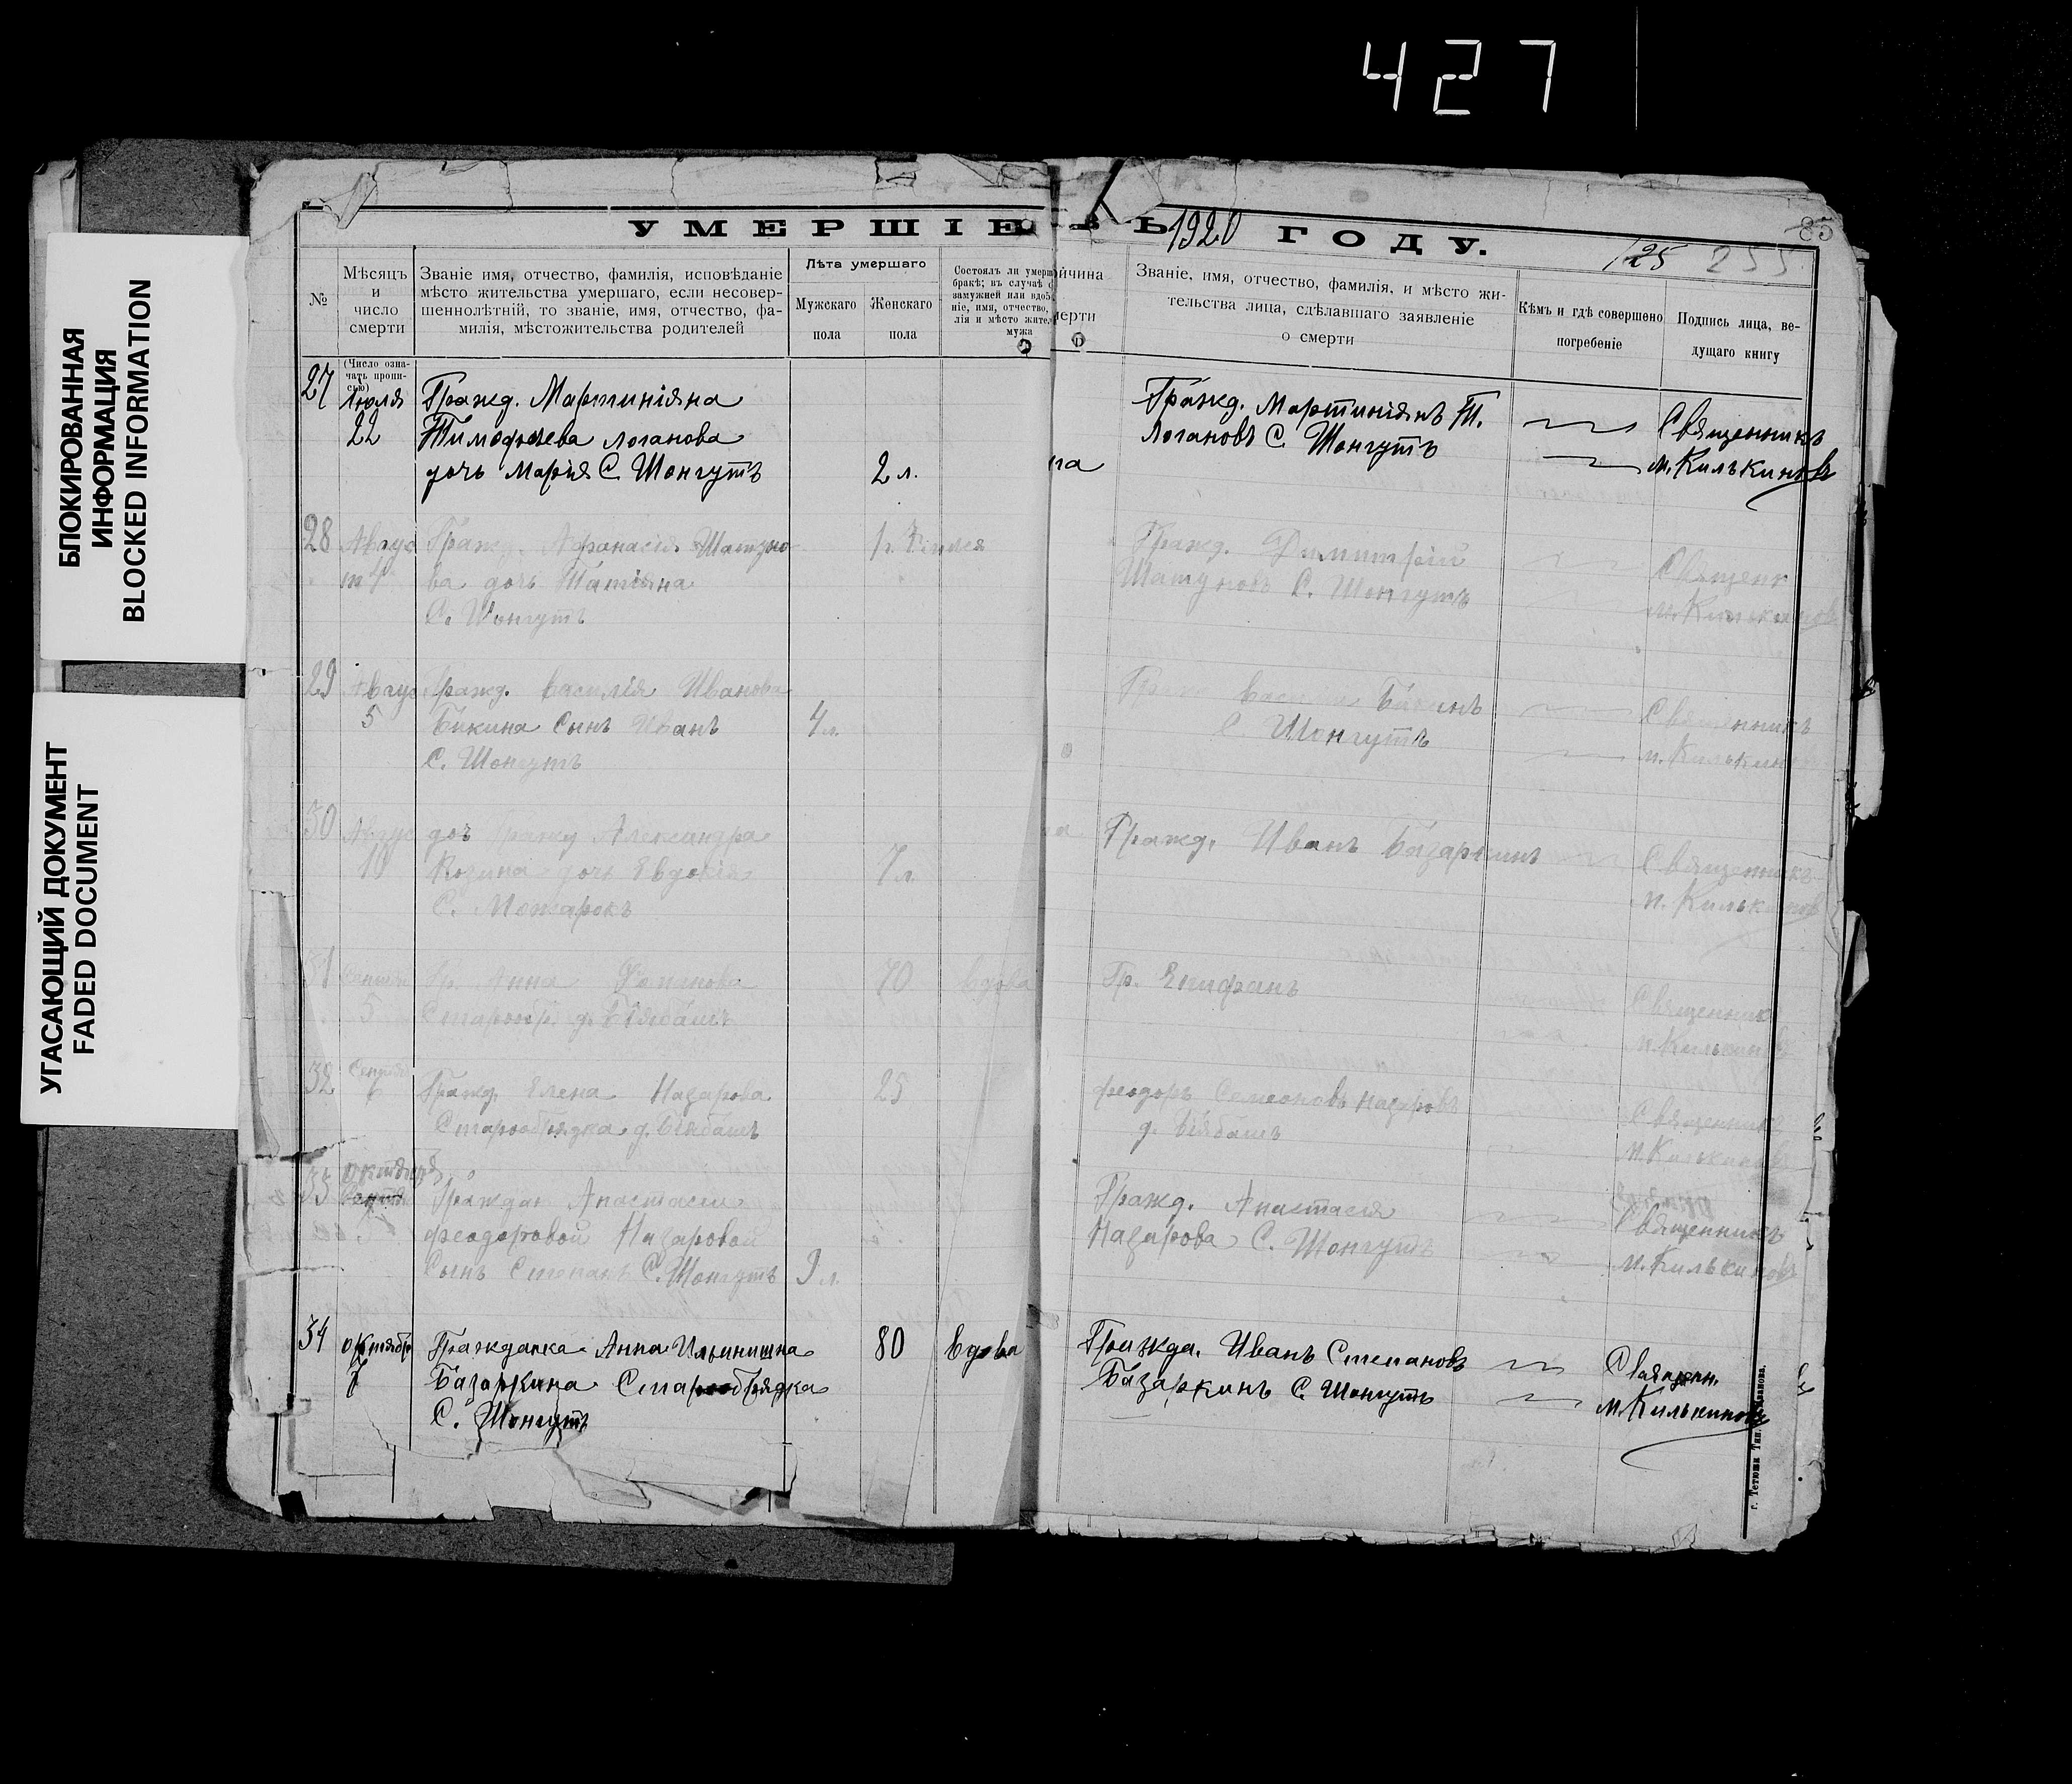 427
БЛОКИРОВАННАЯ
ИНФОРМАЦИЯ
BLOCKED INFORMATION
УГАСАЮЩИЙ ДОКУМЕНТ
FADED DOCUMENT
УМЕРШІЕ ВЪ 1920 ГОДУ.
85
125 255
№
Мѣсяцъ
и
число
смерти
Званіе имя, отчество, фамилія, исповѣданіе
мѣсто жительства умершаго, если несовер-
шеннолѣтній, то званіе, имя, отчество, фа-
милія, мѣстожительства родителей
Лѣта умершаго
Мужскаго
пола
Женскаго
пола
Состоялъ ли умерш
бракѣ; въ случаѣ с
замужней или вдов
ніе, имя, отчество,
лія и мѣсто жител
мужа
ичина
мерти
Званіе, имя, отчество, фамилія, и мѣсто жи-
тельства лица, сдѣлавшаго заявленіе
о смерти
Кѣмъ и гдѣ совершено
погребеніе
Подпись лица, ве-
дущаго книгу
(Число озна-
чать пропи-
сью)
27 Іюля Гражд. Мартиніяна
22 Тимофѣева Логанова
дочь Марія С. Шонгутъ 2 л.
на
Гражд. Мартиніянъ Т.
Логановъ С. Шонгутъ
Священникъ
М. Килькиновъ
28 Авгус Гражд. Афанасія Шатуно-
т 4 ва дочь Татіяна
С. Шонгутъ
Гражд. Димитрій
Шатуновъ С. Шонгутъ
Священ
М. Килькинов
29 Авгус Гражд. Василія Иванова
5 Бикина Сынъ Иванъ 4 л.
С. Шонгутъ
Василій Бикинъ
С. Шонгутъ
Священникъ
М. Килькинов
30 Авгус гражд Александра
10 Козина дочь Евдокія 7 л.
С. Можарокъ
Гражд. Иванъ Базаркинъ
Священникъ
М. Килькинов
31 Гр. Анна 70 вдова
5 Старообр. д. Біябашъ
Гр. Епифанъ
Священник
М. Килькинов
32 Сентяб
6 Гражд. Елена Назарова 25
Старообрядка д. Біябашъ
Феодоръ Семеоновъ Назаровъ
д. Біябашъ
Священникъ
М. Килькиновъ
33 Октября Граждан Анастасіи
Феодоровой Назаровой
Сынъ Степанъ С. Шонгутъ 9 л.
Гражд. Анастасія
Назарова С. Шонгутъ
Священникъ
М. Килькиновъ
34 Октябр Гражданка Анна Ильинишна 80 Вдова
7 Базаркина Старообрядка
С. Шонгутъ
Гражда. Иванъ Степановъ
Базаркинъ С. Шонгутъ
Священ.
М. Килькиновъ